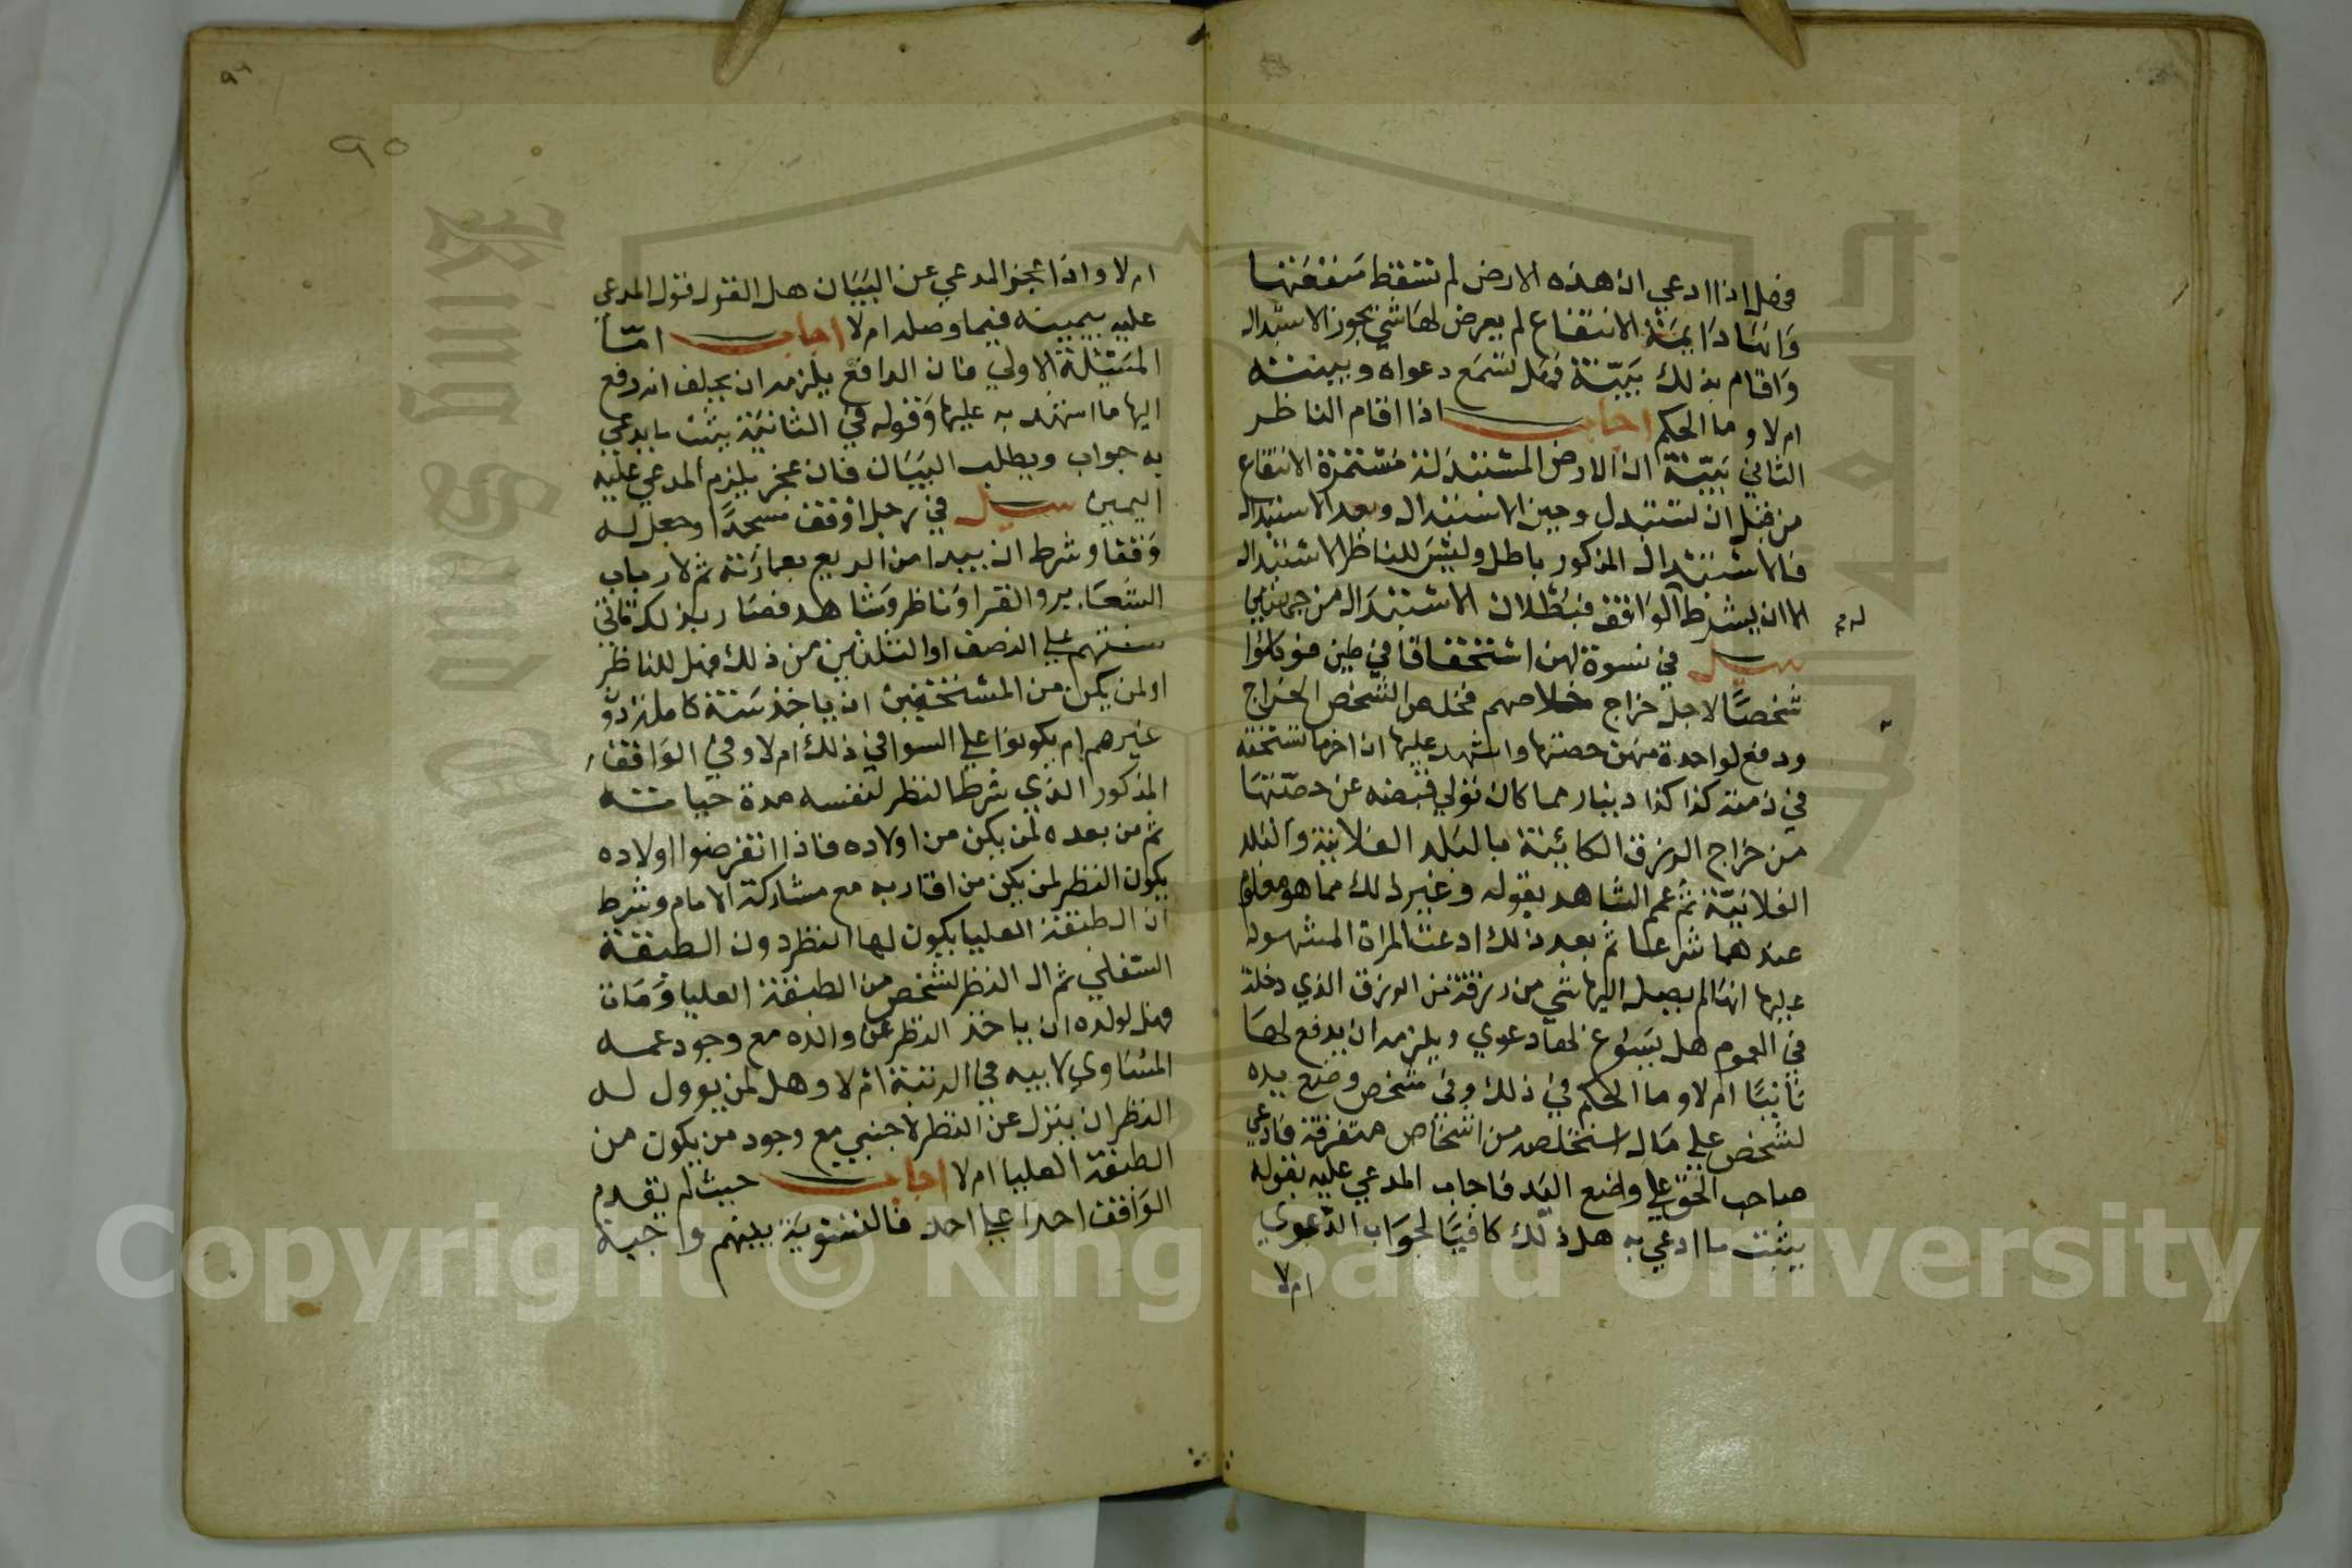 فهل اذا ادعي ان هذه الارض لم تسقط منفعتها
وانها دايمة الانتفاع لم يعرض لها شي يجوز الاستبدال
واقام بذلك بينة فهل تسمع دعواه وبينته
ام لا وما الحكم اجاب اذا اقام الناظر
الثاني بينة ان الارض المستبدلة مستمرة الانتفاع
من قبل ان تستبدل وحين الاستبدال وبعد الاستبدال
فالاستبدال المذكور باطل وليس للناظر الاستبدال
الا ان يشرط الواقف فبطلان الاستبدال من جهتين
سيل في نسوة لهن استحقاقا في طين فوكلوا
شخصا لاجل خراج خلاصهم فخلص الشخص الخراج
ودفع لواحدة منهن حصتها واشهد عليها ان اخر ما تستحقه
في ذمته كذا كذا دينار مما كان تولي قبضه عن حصتها
من خراج الرزق الكائنة بالبلد الفلانية والبلد
الفلانية ثم عمم الشاهد بقوله وغير ذلك مما هو معلوم
عندهما شرعا ثم بعد ذلك ادعت المراة المشهود
عليها انها لم يصل اليها شي من رزقة من الرزق الذي دخلت
في العموم هل يسوغ لها دعوي ويلزمه ان يدفع لها
ثانيا ام لا وما الحكم في ذلك وفي شخص وضع يده
لشخص علي مال استخلصه من اشخاص متفرقة فادعي
صاحب الحق علي واضع اليد فاجاب المدعي عليه بقوله
يثبت ما ادعي به هل ذلك كافيا لجواب الدعوي
ام لا
٩٥
ام لا واذا عجز المدعي عن البيان هل القول قول المدعي
عليه بيمينه فيما وصله ام لا اجاب اما
المسئلة الاولي فان الدافع يلزمه ان يحلف انه دفع
اليها ما اشهد به عليها وقوله في الثانية يثبت ما يدعي
به جواب ويطلب البيان فان عجز يلزم المدعي عليه
اليمين سيل في رجل اوقف مسجدا وجعل له
وقفا وشرط ان يبدا من الريع بعمارته ثم لارباب
الشعاير والقرا وناظر وشاهد فصار بذلك تاتي
سنتهم علي النصف او الثلثين من ذلك فهل للناظر
او لمن يكن من المستحقين ان ياخذ سنة كاملة دون
غيرهم ام يكونوا علي السوا في ذلك ام لا وفي الواقف
المذكور الذي شرط النظر لنفسه مدة حياته
ثم من بعده لمن يكن من اولاده فاذا انقرضوا اولاده
يكون النظر لمن يكن من اقاربه مع مشاركة الامام وشرط
ان الطبقة العليا يكون لها النظر دون الطبقة
السفلي ثم ال النظر لشخص من الطبقة العليا ومات
فهل لولده ان ياخذ النظر عن والده مع وجود عمه
المساوي لابيه في الرتبة ام لا وهل لمن يوول له
النظر ان ينزل عن النظر لاجنبي مع وجود من يكون من
الطبقة العليا ام لا اجاب حيث لم يقدم
الواقف احدا علي احد فالتسوية بينهم واجبة
Copyright © King Saud University